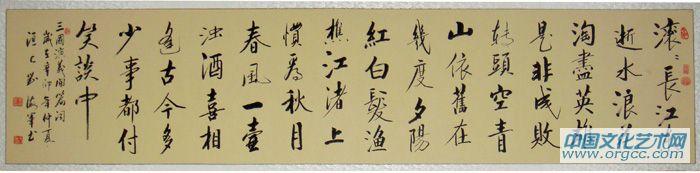 滚〻長江东
逝水浪花
淘盡英雄
是非成敗
转頭空青
山依舊在
幾度夕陽
紅白髮漁
樵江渚上
慣看秋月
春風一壺
浊酒喜相
逢古今多
少事都付
笑談中
三國演義開篇词
歲在辛卯年仲夏
中国文化艺术网
www.orgcc.com